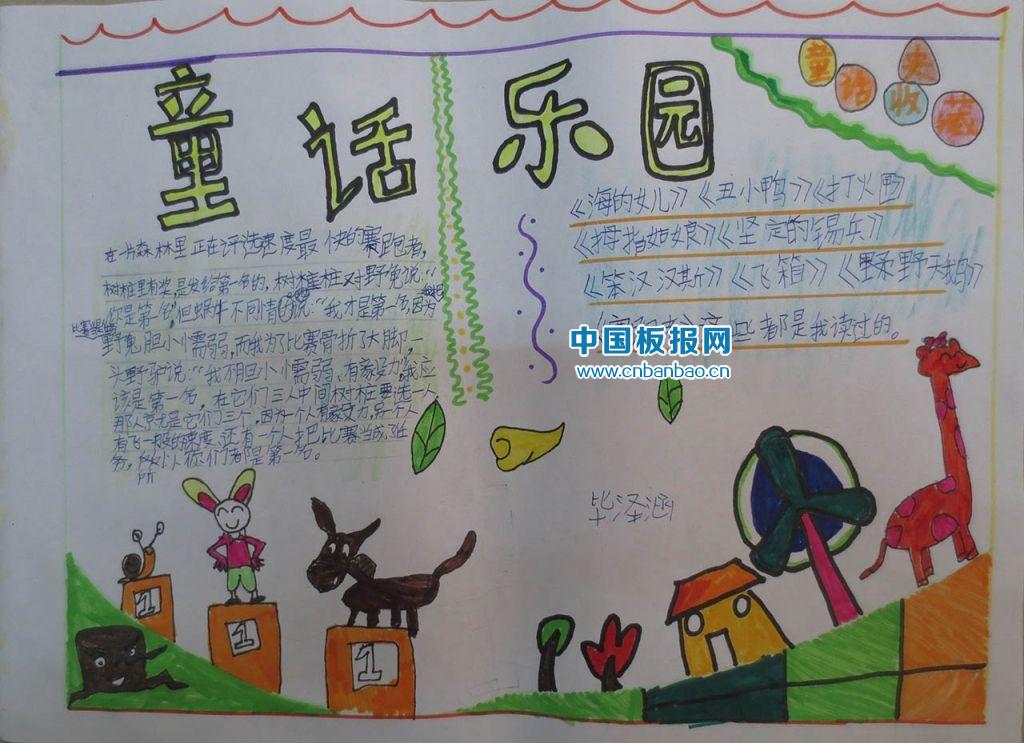 童话乐园
童话大
收藏
在书森林里正在评选速度最快的赛跑者,
树桩里有奖,是发给第一名的,树桩桩对野兔说:“
你是第一名”,但蜗牛不同情的说:“我才是第一名,因为
野兔胆小懦弱,而我为了比赛骨折了大脚,一
头野驴说:“我不胆小懦弱、有忍受力,我应
该是第一名,在它们三人中间树桩要选一人
那人就是它们三个,因为一个人有忍受力,另一个人
有飞一般的速度,还有一个人把比赛当成了任
务,所以你们都是第一名。
《海的女儿》《丑小鸭》《打火匣》
《拇指姑娘》《坚定的锡兵》
《笨汉汉斯》《飞箱》《野天鹅》
都是我读过的。
中国板报网
www.cnbanbao.cn
毕泽涵
1
1
1